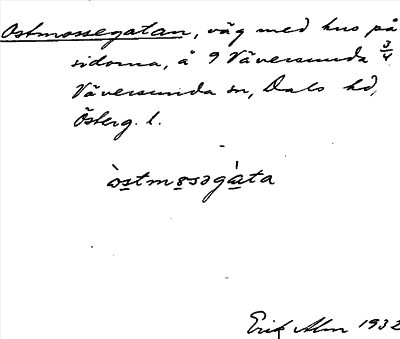 Ostmossegatan, väg med hus på
sidorna, å 9 Väversunda 3/4
Väversunda sn, Dals hd,
Österg. l.
òstmosəgàta
Erik Alm 1932